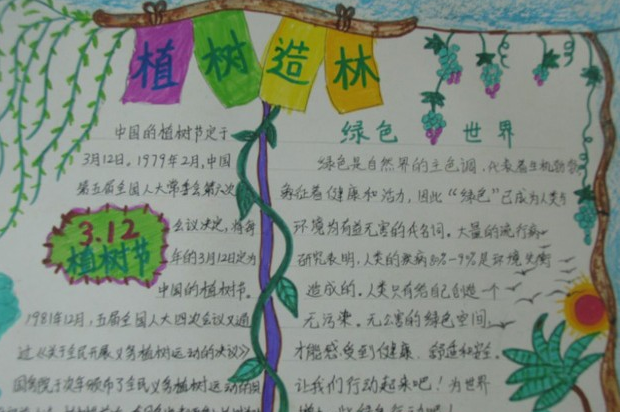 植树造林
中国的植树节定于
3月12日。1979年2月,中国
第五届全国人大常委会第六次
会议决定,将每
年的3月12日定为
中国的植树节。
3.12
植树节
1981年12月,五届全国人大四次会议又通
过《关于全民开展义务植树运动的决议》
国务院于次年颁布了全民义务植树运动的
绿色 世界
绿色是自然界的主色调,代表着生机勃勃
象征着健康和活力,因此“绿色”已成为人类与
环境为有益无害的代名词。大量的流行病
研究表明,人类的疾病
是环境失衡
造成的。人类只有给自己创造一个
无污染。无公害的绿色空间,
才能感受到健康、舒适和安全。
让我们行动起来吧!为世界